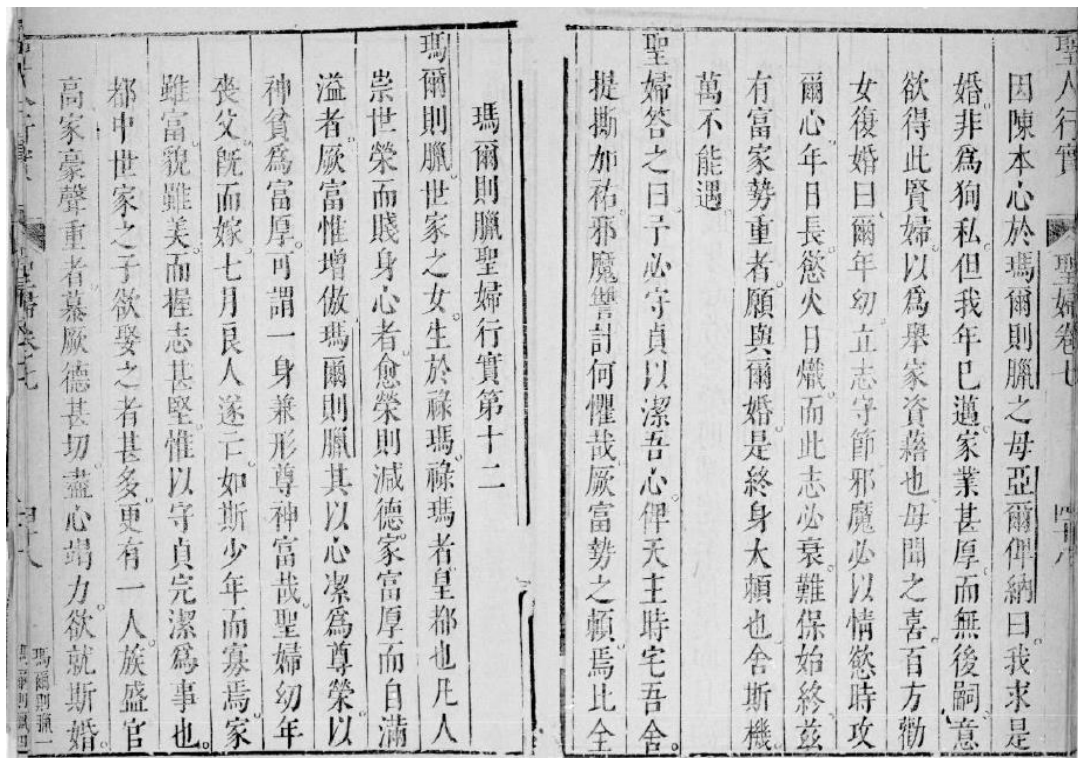 聖人行實 聖婦卷七 四十八
因陳本心於瑪爾則臘之母亞爾俾納曰。我求是
婚。非爲狥私。但我年已邁。家業甚厚。而無後嗣。意
欲得此賢婦。以爲舉家資藉也。母聞之喜。百方勸
女復婚曰。爾年幼。立志守節。邪魔必以情慾時攻
爾心。年日長。慾火日熾。而此志必衰。難保始終。茲
有富家勢重者。願與爾婚。是終身大賴也。舍斯機。
萬不能遇。
聖婦答之曰。予必守貞以潔吾心。俾天主時宅吾舍。
提撕加祐。邪魔讐計何懼哉。厥富勢之賴。焉比全
瑪爾則臘聖婦行實第十二
瑪爾則臘。世家之女。生於祿瑪。祿瑪者。皇都也。凡人
崇世榮而賤身心者。愈榮則減德。家富厚而自滿
溢者。厥富惟增傲。瑪爾則臘其以心潔爲尊榮。以
神貧爲富厚。可謂一身兼形尊神富哉。聖婦幼年
喪父。旣而嫁。七月良人遂亡。如斯少年而寡焉。家
雖富。貌雖美。而握志甚堅。惟以守貞完潔爲事也。
都中世家之子欲娶之者甚多。更有一人。族盛官
高家豪聲重者。慕厥德甚切。盡心竭力。欲就斯婚。
聖婦卷七
瑪爾則臘一